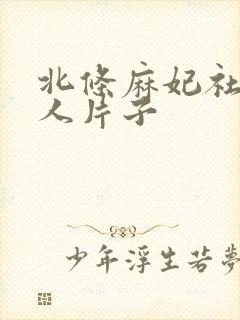 北條麻妃社
人片子
少年浮生若夢